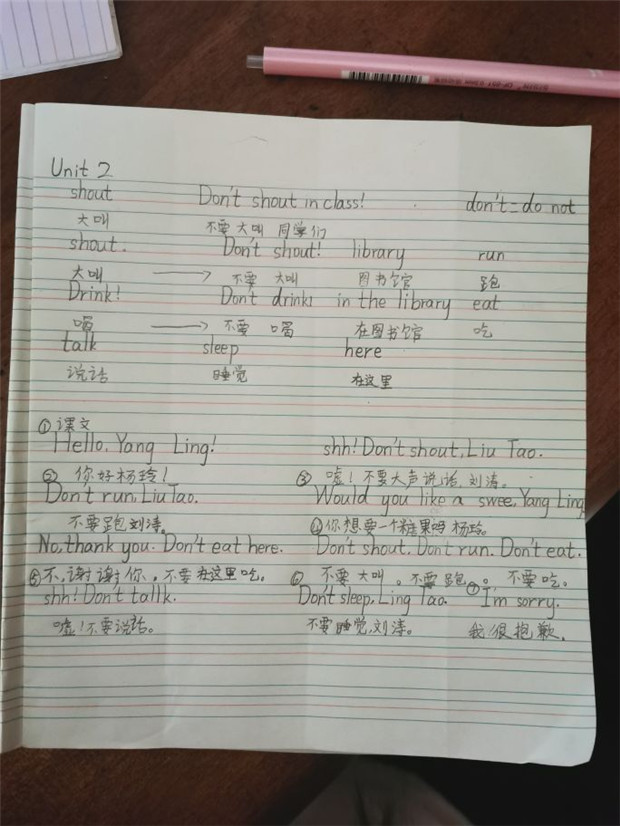 Unit 2
shout Don't shout in class! don't = do not
大叫 不要大叫 同学们
shout. Don't shout! library run
大叫 → 不要 大叫 图书馆 跑
Drink! Don't drink in the library eat
喝 → 不要 喝 在图书馆 吃
talk sleep here
说话 睡觉 在这里
①课文
Hello, Yang Ling! shh! Don't shout, Liu Tao.
② 你好杨玲! ③ 嘘!不要大声说话,刘涛。
Don't run, Liu Tao. Would you like a swee, Yang Ling
不要跑刘涛。 ④你想要一个糖果吗 杨玲。
No, thank you. Don't eat here. Don't shout. Don't run. Don't eat.
⑤不,谢谢你,不要在这里吃。 ⑥ 不要大叫。不要跑。不要吃。
shh! Don't tallk. Don't sleep, Ling Tao. ⑦ I'm sorry.
嘘!不要说话。 不要睡觉,刘涛。 我很抱歉。